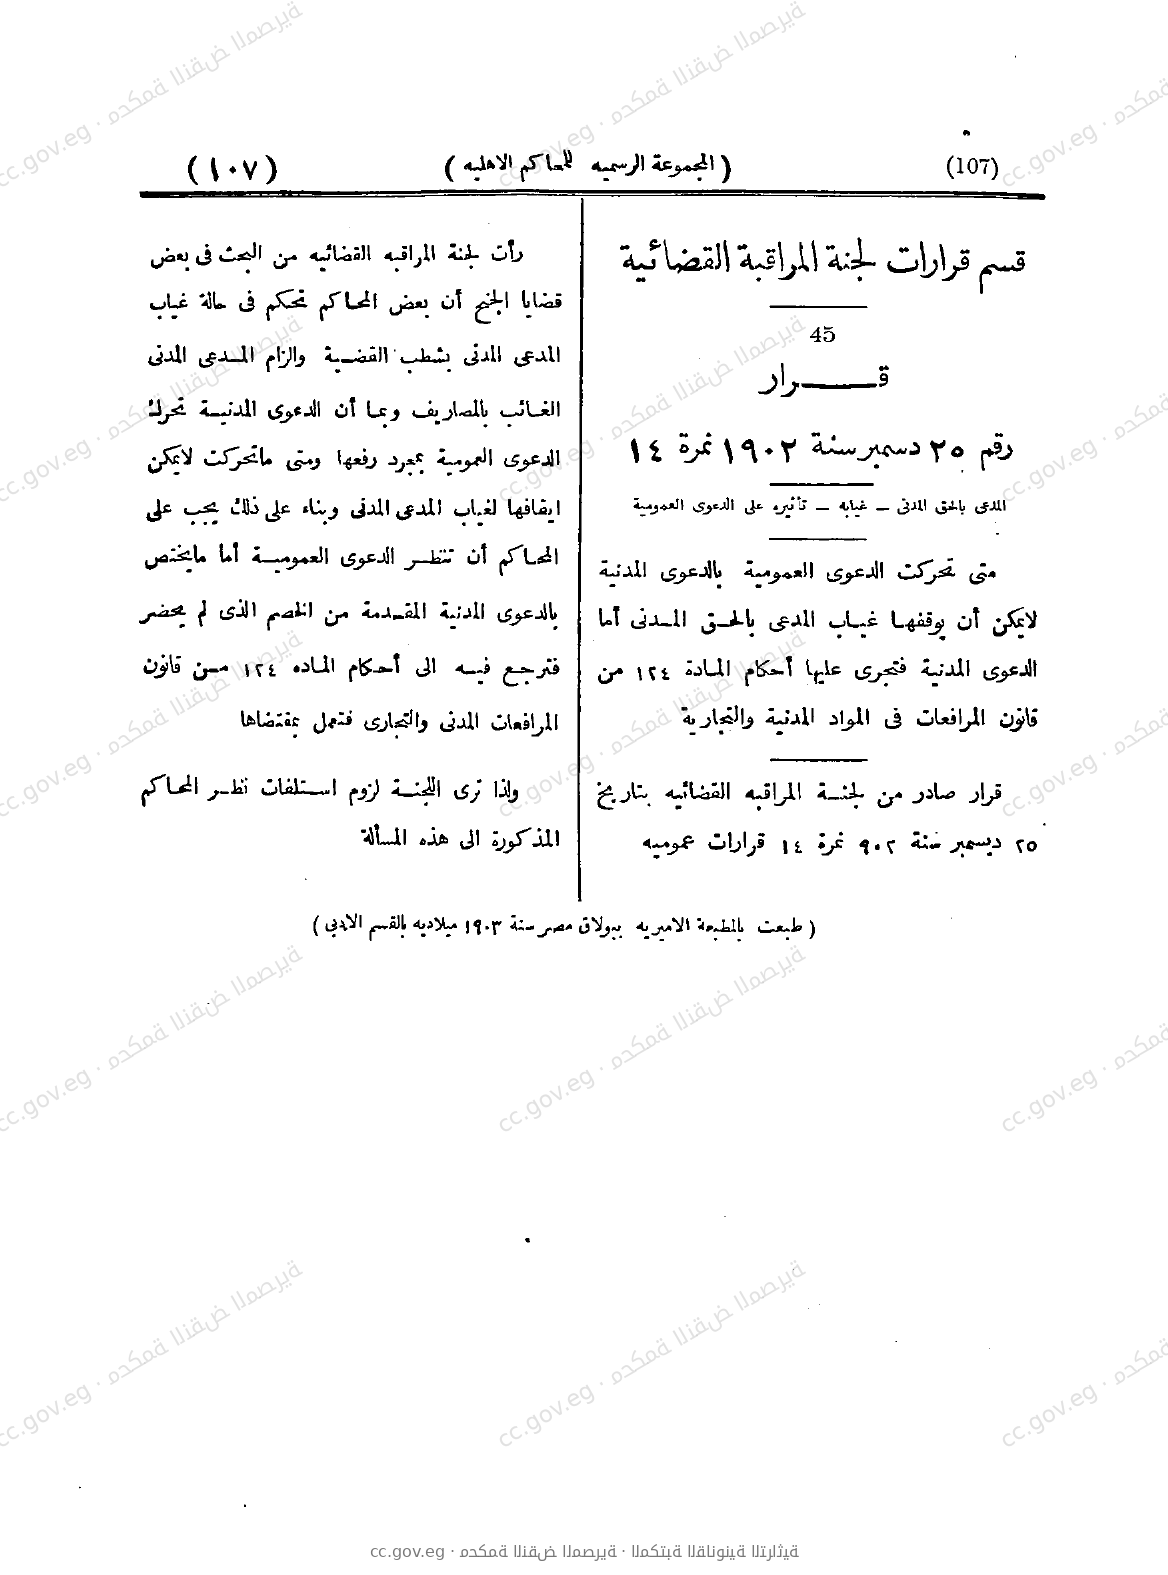 (107)
( المجموعة الرسميه للمحاكم الاهليه )
( ١٠٧ )
قسم قرارات لجنة المراقبة القضائية
45
قــــرار
رقم ٢٥ دسمبر سنة ١٩٠٢ نمرة ١٤
المدعى بالحق المدنى – غيابه – تأثيره على الدعوى العمومية
متى تحركت الدعوى العمومية بالدعوى المدنية
لايمكن أن يوقفها غياب المدعى بالحق المدنى أما
الدعوى المدنية فتجرى عليها أحكام المادة ١٢٤ من
قانون المرافعات فى المواد المدنية والتجارية
قرار صادر من لجنة المراقبه القضائيه بتاريخ
٢٥ ديسمبر سنة ٩٠٢ نمرة ١٤ قرارات عموميه
رأت لجنة المراقبه القضائيه من البحث فى بعض
قضايا الجنح أن بعض المحاكم تحكم فى حالة غياب
المدعى المدنى بشطب القضية والزام المدعى المدنى
الغائب بالمصاريف وبما أن الدعوى المدنية تحرك
الدعوى العمومية بمجرد رفعها ومتى ماتحركت لايمكن
ايقافها لغياب المدعى المدنى وبناء على ذلك يجب على
المحاكم أن تنظر الدعوى العمومية أما مايختص
بالدعوى المدنية المقدمة من الخصم الذى لم يحضر
فترجع فيه الى أحكام الماده ١٢٤ من قانون
المرافعات المدنى والتجارى فتعمل بمقتضاها
ولذا ترى اللجنة لزوم استلفات نظر المحاكم
المذكورة الى هذه المسألة
( طبعت بالمطبعة الاميريه ببولاق مصر سنة ١٩٠٣ ميلاديه بالقسم الادبى )
cc.gov.eg · محكمة النقض المصرية · المكتبة القانونية التراثية